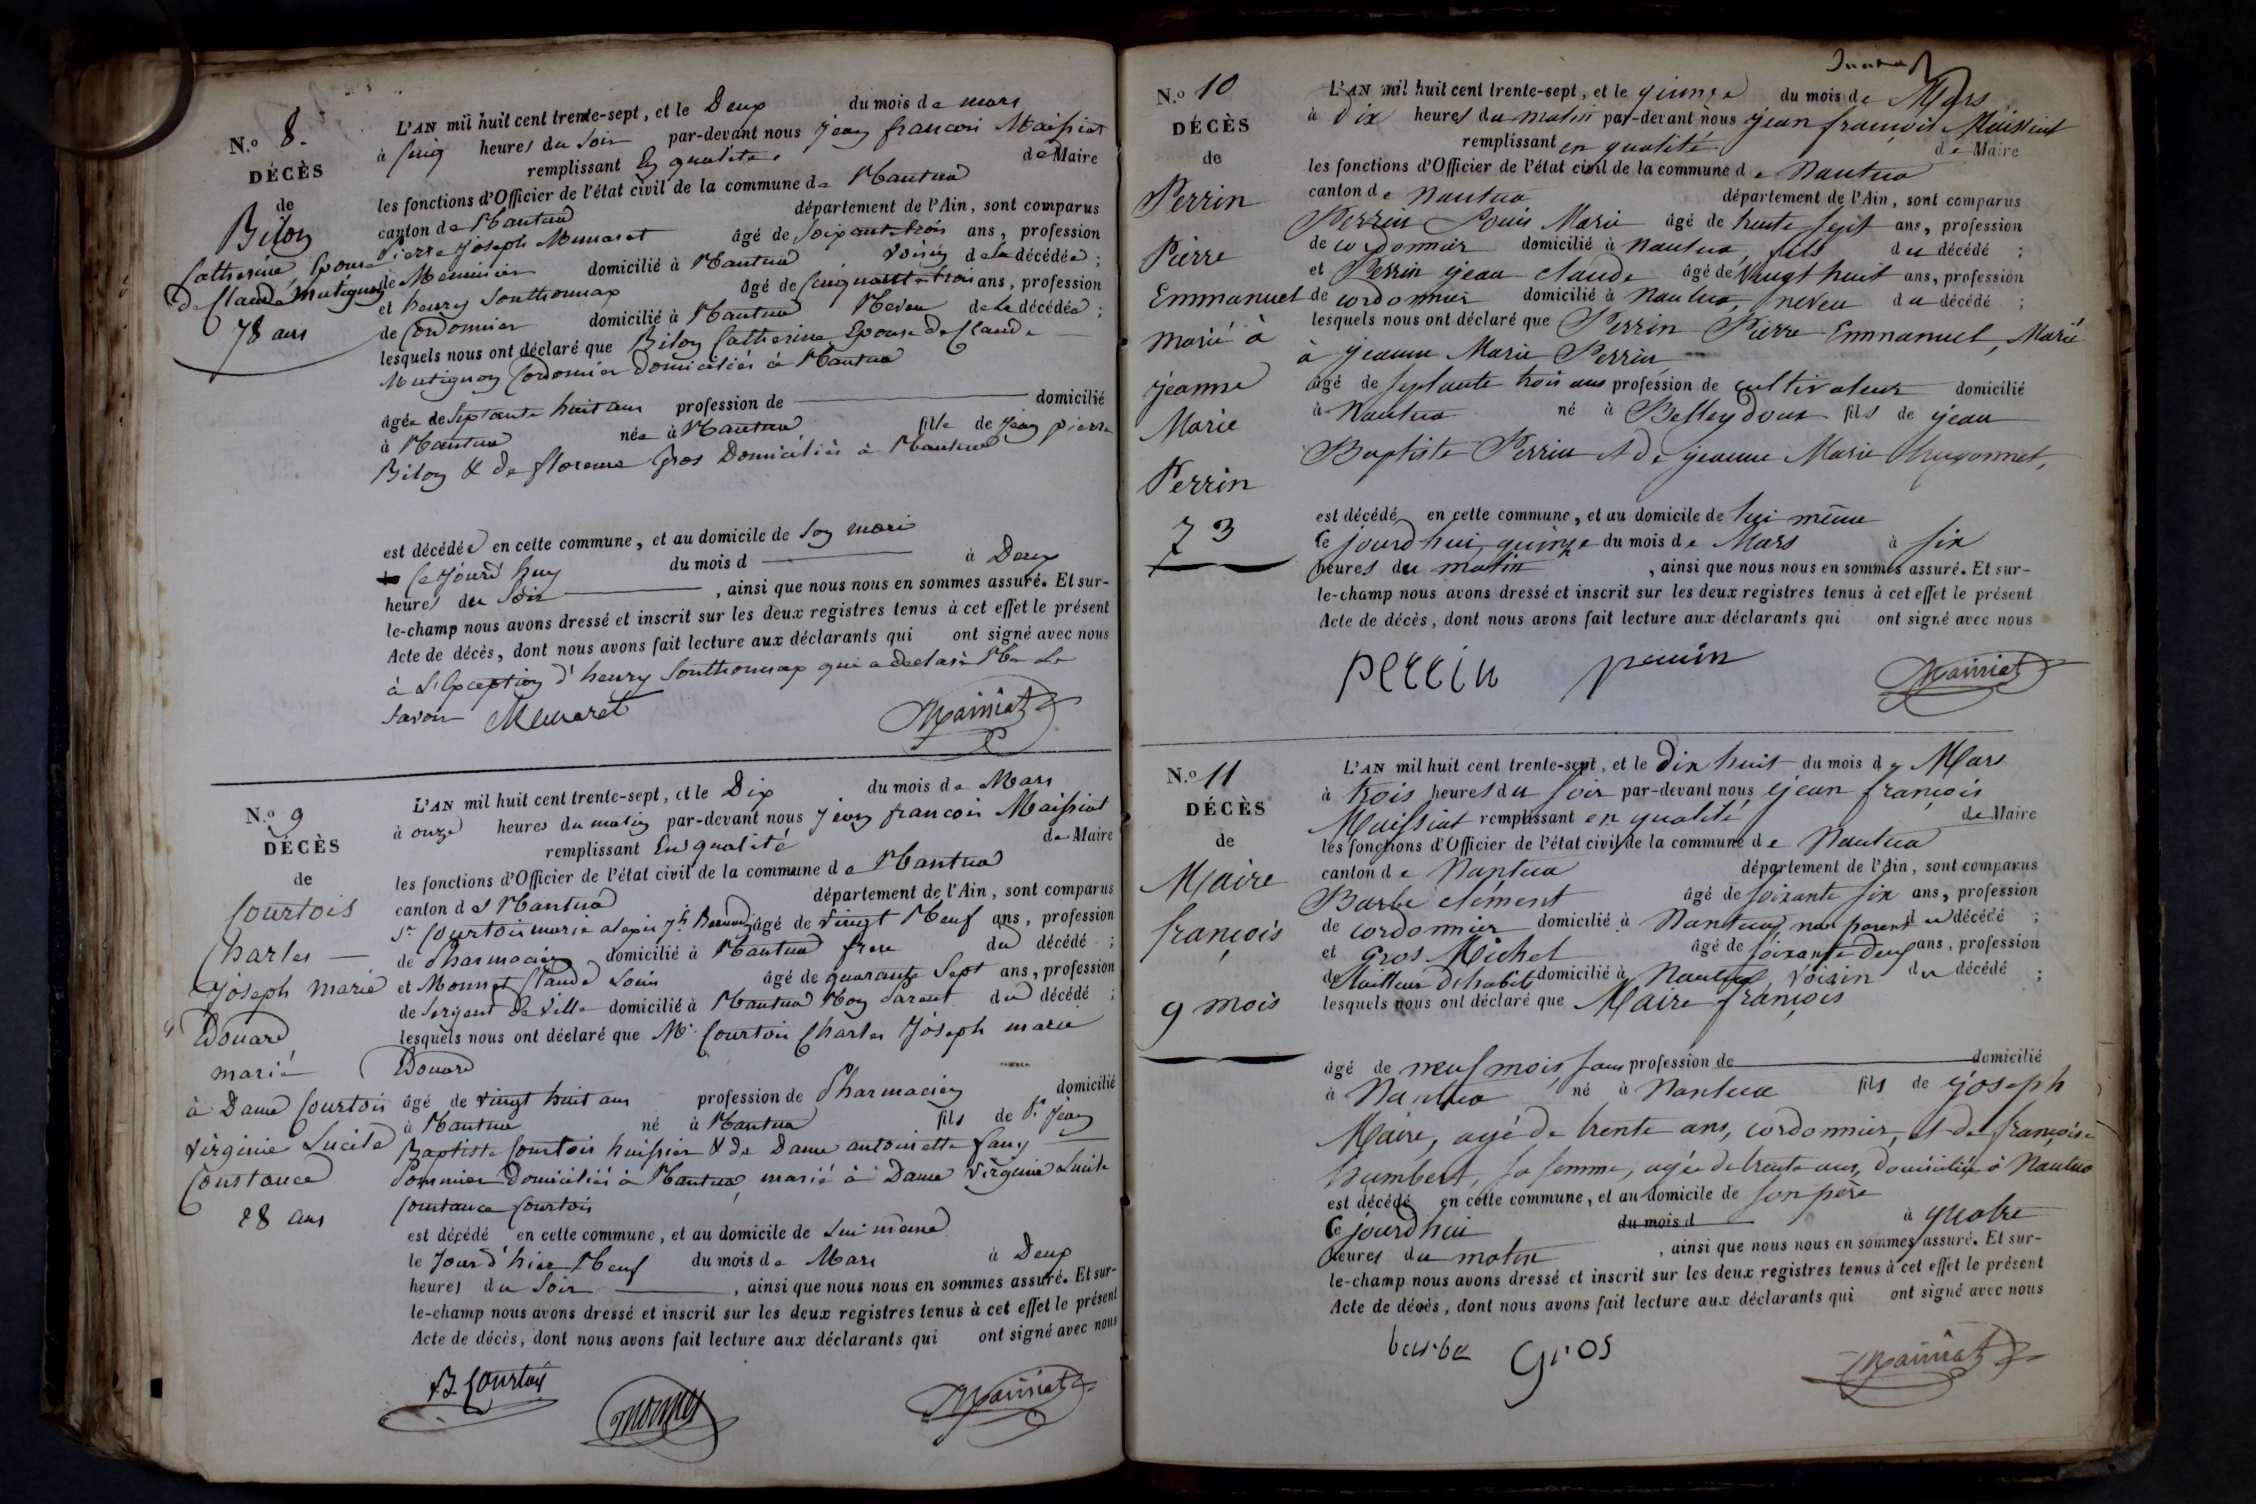 N.o 8.
DÉCÈS
de
Bilon
Catherine, Epouse
de Claude Mutignon
78 ans
L'AN mil huit cent trente-sept, et le Deux du mois de mars
à Cinq heures du Soir par-devant nous Jean françois Maissiat
remplissant En qualité de Maire
les fonctions d'Officier de l'état civil de la commune de Nantua
canton de Nantua département de l'Ain, sont comparus
Pierre Joseph Munaret âgé de Soixante trois ans, profession
de Menuisier domicilié à Nantua Voisin de la décédée;
et henry Southonnax âgé de Cinquante trois ans, profession
de Cordonnier domicilié à Nantua Neveu de la décédée;
lesquels nous ont déclaré que Bilon Catherine Epouse de Claude
Mutignon Cordonnier Domiciliés à Nantua
âgée de Septante huit ans profession de domicilié
à Nantua née à Nantua fille de Jean pierre
Bilon & de florence Gros Domiciliés à Nantua
est décédée en cette commune, et au domicile de Son mari
Ce Jourd'huy du mois d à Deux
heures du Soir, ainsi que nous nous en sommes assuré. Et sur-
le-champ nous avons dressé et inscrit sur les deux registres tenus à cet effet le présent
Acte de décès, dont nous avons fait lecture aux déclarants qui ont signé avec nous
à L'Exception d'henry Southonnax qui a declaré Ne Le
Savoir Munaret Maissiat
N.o 9
DÉCÈS
de
Courtois
Charles
Joseph Marie
Edouard
marié
à Dame Courtois
Virginie Lucile
Constance
28 ans
L'AN mil huit cent trente-sept, et le Dix du mois de Mars
à onze heures du matin par-devant nous Jean françois Maissiat
remplissant En qualité de Maire
les fonctions d'Officier de l'état civil de la commune de Nantua
canton de Nantua département de l'Ain, sont comparus
Sr Courtois marie alexis Jh âgé de vingt Neuf ans, profession
de Pharmacien domicilié à Nantua frere du décédé;
et Monnet Claude Louis âgé de quarante Sept ans, profession
de Sergent de Ville domicilié à Nantua Non Parent du décédé;
lesquels nous ont déclaré que Mr Courtois Charles Joseph marie
Edouard
âgé de vingt huit ans profession de Pharmacien domicilié
à Nantua né à Nantua fils de Sr Jean
Baptiste Courtois huissier & de Dame antoinette fany
Sommier Domiciliés à Nantua, marié à Dame Virginie Lucile
Constance Courtois
est décédé en cette commune, et au domicile de Lui même
le Jour d'hier Neuf du mois de Mars à Deux
heures du Soir, ainsi que nous nous en sommes assuré. Et sur-
le-champ nous avons dressé et inscrit sur les deux registres tenus à cet effet le présent
Acte de décès, dont nous avons fait lecture aux déclarants qui ont signé avec nous
Courtois Monnet Maissiat
N.o 10
DÉCÈS
de
Perrin
Pierre
Emmanuel
marié à
jeanne
Marie
Perrin
73
L'AN mil huit cent trente-sept, et le quinze du mois de Mars
à Dix heures du matin par-devant nous jean françois Maissiat
remplissant en qualité de Maire
les fonctions d'Officier de l'état civil de la commune de Nantua
canton de Nantua département de l'Ain, sont comparus
Perrin Louis Marie âgé de trente sept ans, profession
de cordonnier domicilié à Nantua, fils du décédé;
et Perrin jean claude âgé de Vingt huit ans, profession
de cordonnier domicilié à Nantua, neveu du décédé;
lesquels nous ont déclaré que Perrin Pierre Emmanuel, Marié
à jeanne Marie Perrin
âgé de septante trois ans profession de cultivateur domicilié
à Nantua né à Belleydoux fils de jean
Baptiste Perrin et de jeanne Marie hugonnet,
est décédé en cette commune, et au domicile de lui même
Ce jourd'hui, quinze du mois de Mars à six
heures du matin, ainsi que nous nous en sommes assuré. Et sur-
le-champ nous avons dressé et inscrit sur les deux registres tenus à cet effet le présent
Acte de décès, dont nous avons fait lecture aux déclarants qui ont signé avec nous
perrin perrin Maissiat
N.o 11
DÉCÈS
de
Maire
françois
9 mois
L'AN mil huit cent trente-sept, et le dix huit du mois de Mars
à trois heures du soir par-devant nous jean françois
Maissiat remplissant en qualité de Maire
les fonctions d'Officier de l'état civil de la commune de Nantua
canton de Nantua département de l'Ain, sont comparus
Barbe clément âgé de soixante six ans, profession
de cordonnier domicilié à Nantua, non parent du décédé;
et Gros Michel âgé de soixante Deux ans, profession
de Tailleur d'habits domicilié à Nantua, Voisin du décédé;
lesquels nous ont déclaré que Maire françois
âgé de neuf mois, sans profession de domicilié
à Nantua né à Nantua fils de joseph
Maire, agé de trente ans, cordonnier, et de françoise
humbert, sa femme, agée de trente ans, domiciliés à Nantua
est décédé en cette commune, et au domicile de son père
Ce jourd'hui du mois d à quatre
heures du matin, ainsi que nous nous en sommes assuré. Et sur-
le-champ nous avons dressé et inscrit sur les deux registres tenus à cet effet le présent
Acte de décès, dont nous avons fait lecture aux déclarants qui ont signé avec nous
barbe Gros Maissiat